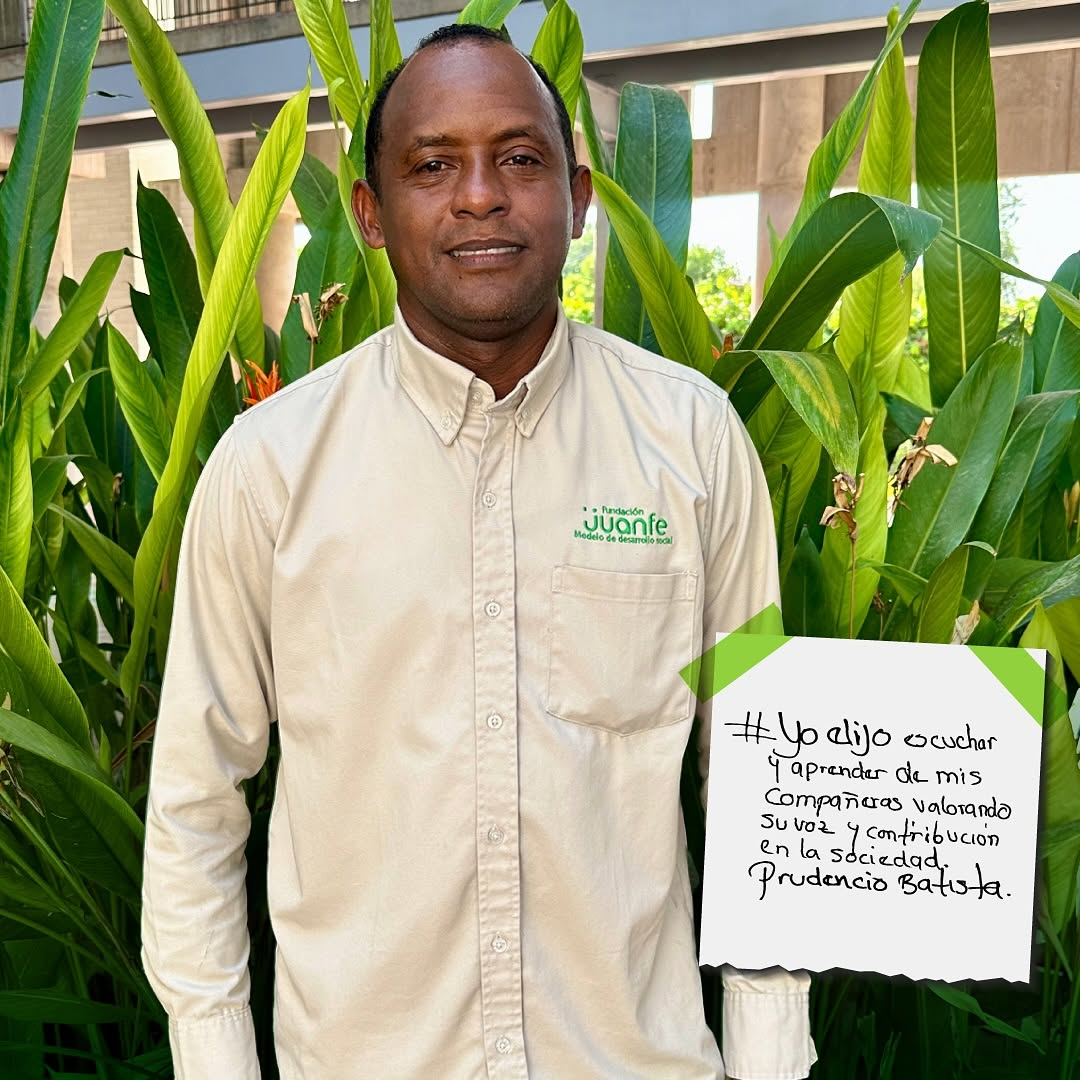 Fundación
juanfe
Modelo de desarrollo social
# Yo elijo escuchar
y aprender de mis
Compañeras valorando
su voz y contribución
en la sociedad.
Prudencio Batista.